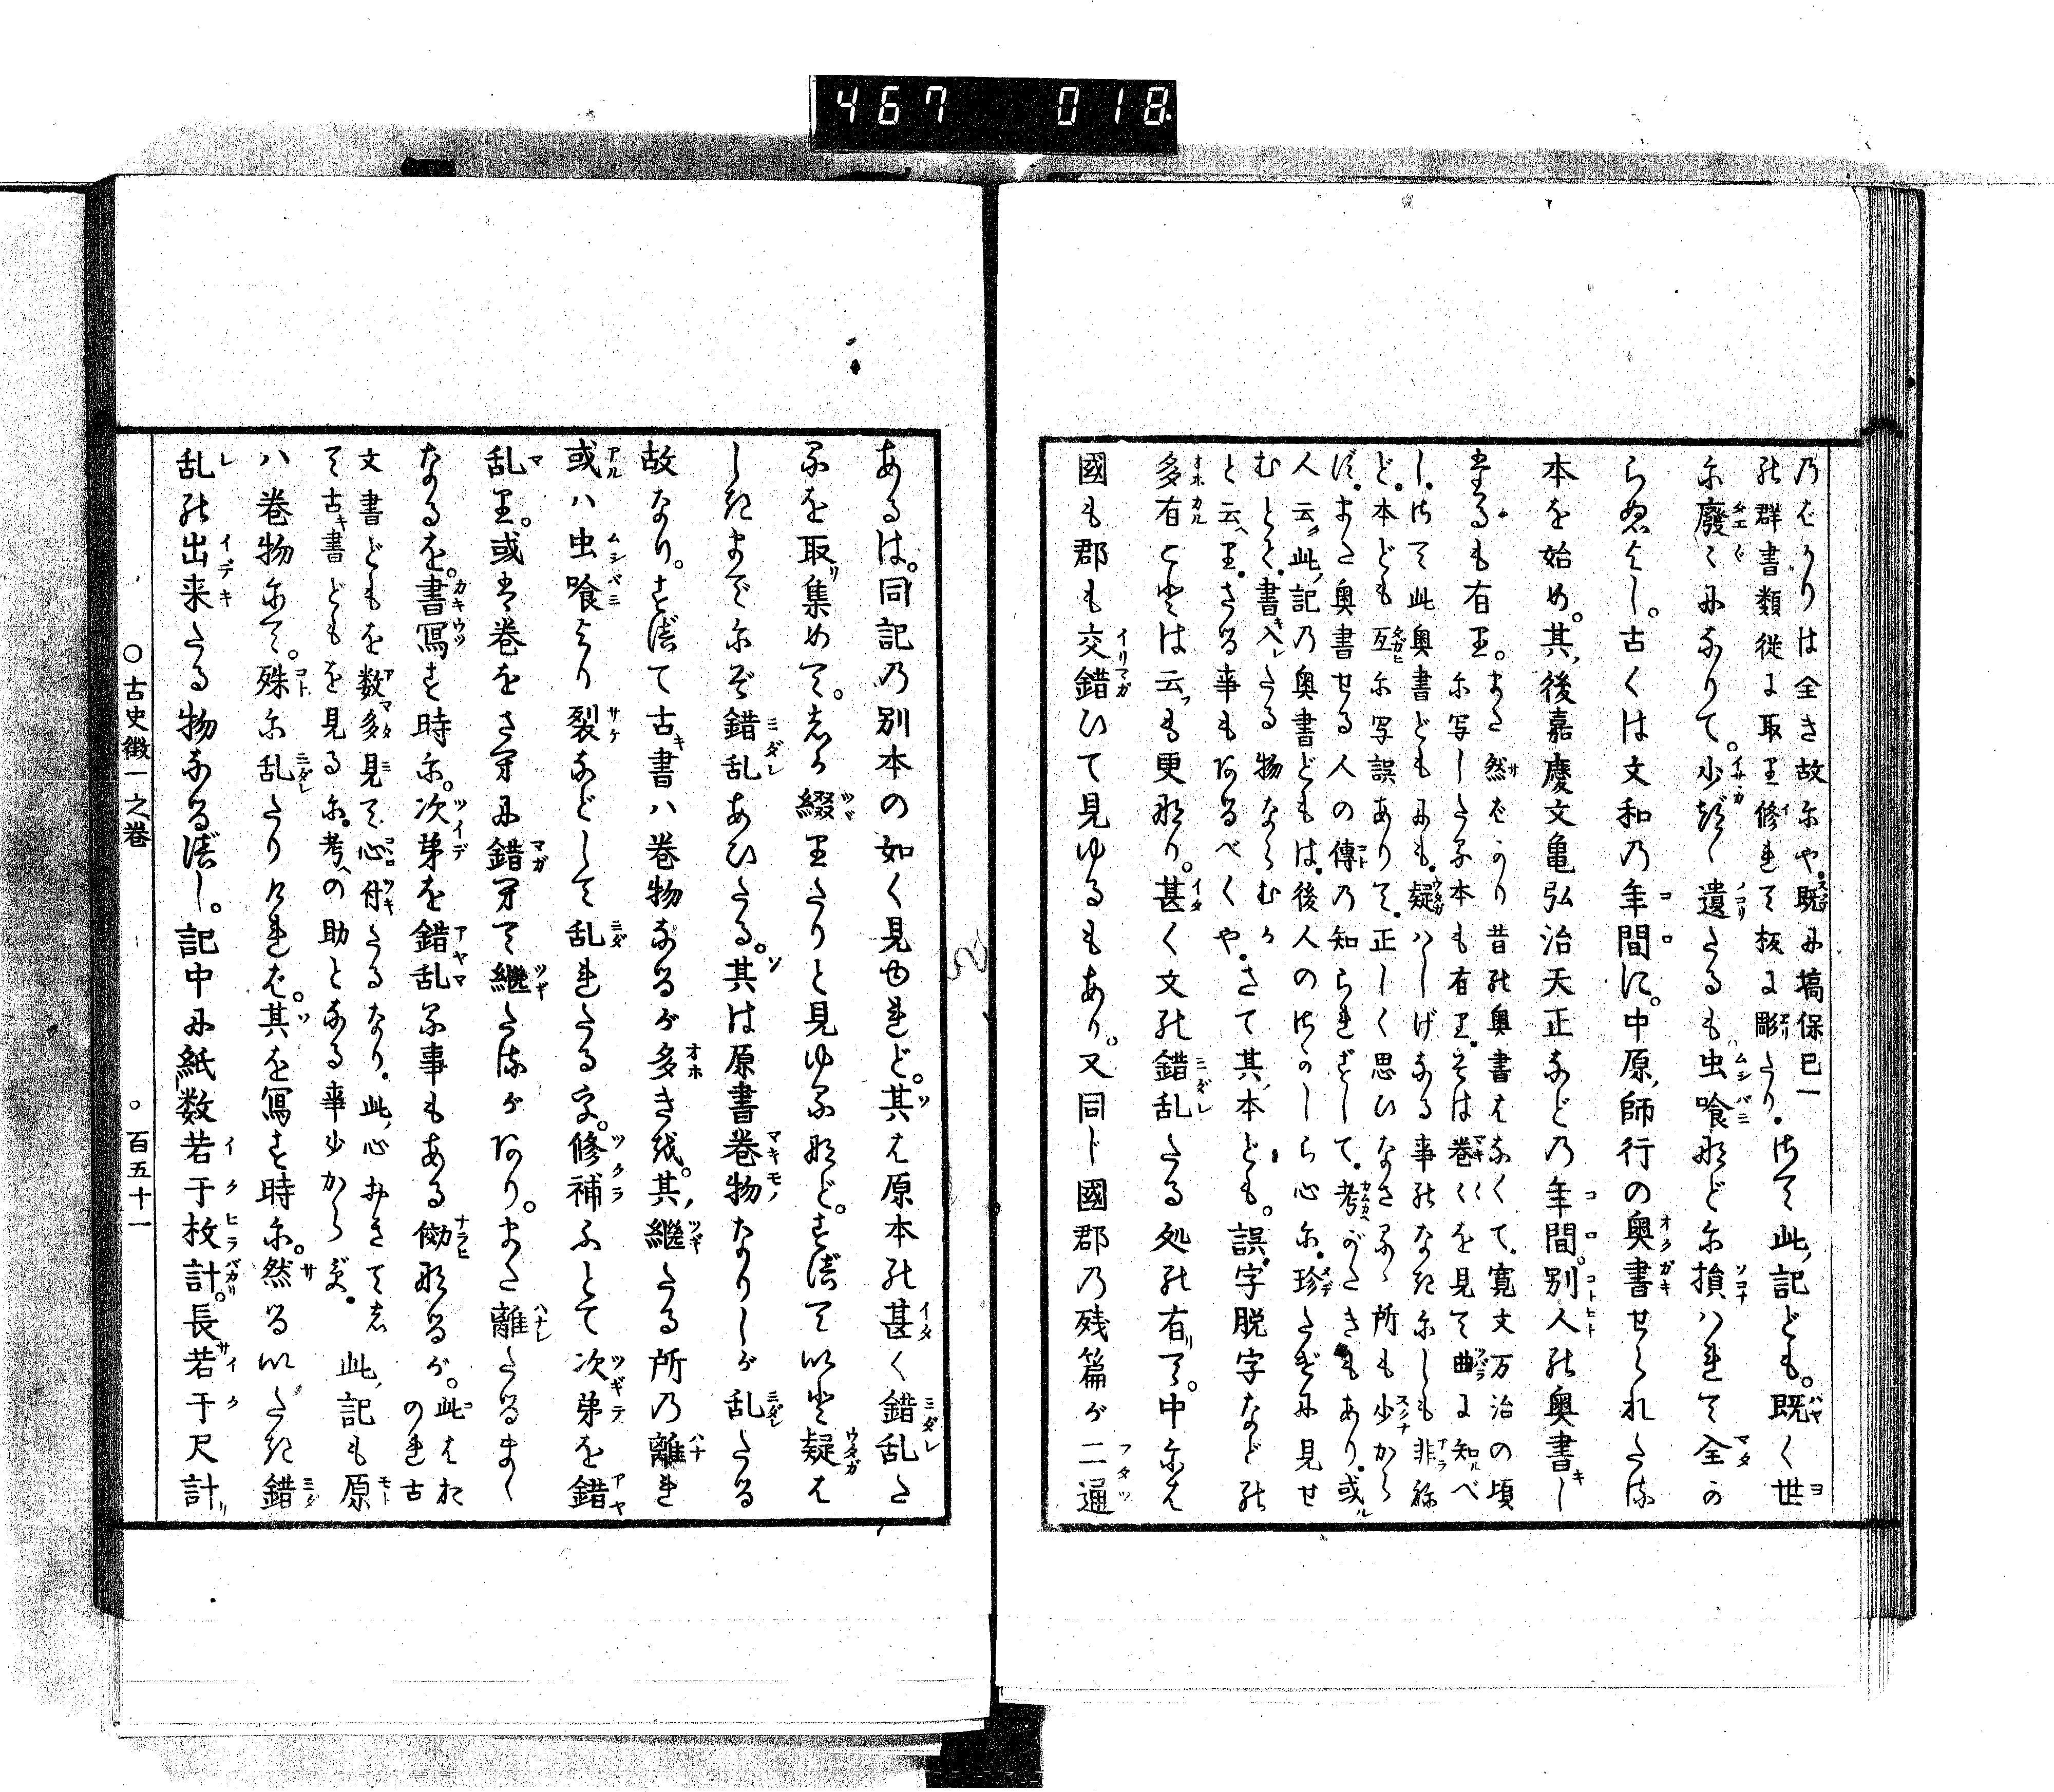 467 018
乃ばかりは全き故にや。既に塙保己一
の群書類従に取り修れて板に彫たり。さて此記ども。既く世
に廢々になりて。少かに遺たるも虫喰などに損はれて全か
らぬよし。古くは文和の年間に。中原師行の奥書せられたる
本を始め。其後嘉慶文亀弘治天正などの年間。別人の奥書し
たるも有り。また然ばかり昔の奥書はなくて。寛文万治の頃
に写したる本も有り。そは巻々を見て曲に知べ
し。さて此奥書どもにも。疑はしげなる事のなきにしも非ね
ど。本ども互に写誤ありて。正しく思ひなさるゝ所も少から
ず。また奥書せる人の傳の知られずして。考がたきもあり。或
人云。此記の奥書どもは。後人のさかしら心に。珍たげに見せ
むとて。書入たる物ならむか
と云へり。さる事もあるべくや。さて其本ども。誤字脱字などの
多有ことは云も更なり。甚く文の錯乱たる処の有て。中には
國も郡も交錯ひて見ゆるもあり。又同じ國郡の残篇が二通
あるは。同記の別本の如く見ゆれど。其は原本の甚く錯乱た
るを取集めて。あらぬ綴りたりと見ゆるなど。すべていと疑は
しきまでにぞ錯乱あひたる。其は原書巻物なりしが乱たる
故なり。すべて古書ハ巻物なるが多きを。其継たる所の離れ
或ハ虫喰より裂などして乱れたるを。修補ふとて次第を錯
乱り。或は巻をさへに錯へて継たるがあり。また離たるまゝ
なるを。書寫す時に。次第を錯乱る事もある例なるが。此はおのれ古
文書どもを数多見て。心付たるなり。此心おきてし
て古書どもを見るに。考の助となる事少からず。此記も原
ハ巻物にて。殊に乱たりければ。其を寫す時に。然るいたき錯
乱の出来たる物なるべし。記中に紙数若干枚計。長若干尺計
○古史徴一之巻
○百五十一